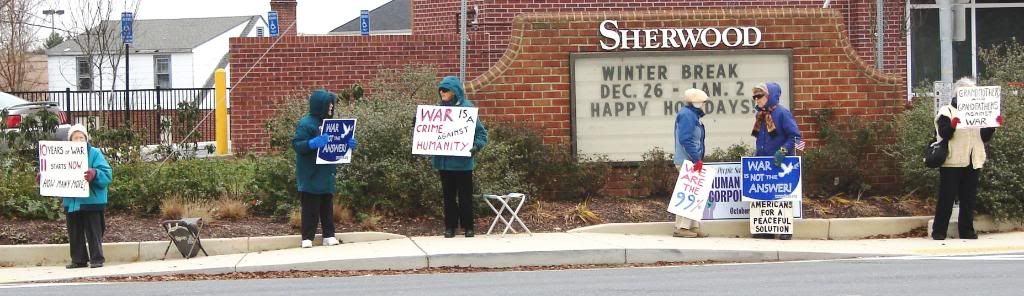 SHERWOOD
WINTER BREAK
DEC. 26 - JAN. 2
HAPPY HOLIDAYS!
10 YEARS OF WAR
11 STARTS NOW
HOW MANY MORE?
WAR
IS NOT THE
ANSWER!
WAR IS A
CRIME
AGAINST
HUMANITY
WE ARE
THE
99%
HUMAN
October
WAR
IS NOT THE
ANSWER!
AMERICANS
FOR A
PEACEFUL
SOLUTION
GRANDMOTHERS
AND
GRANDFATHERS
AGAINST
WAR